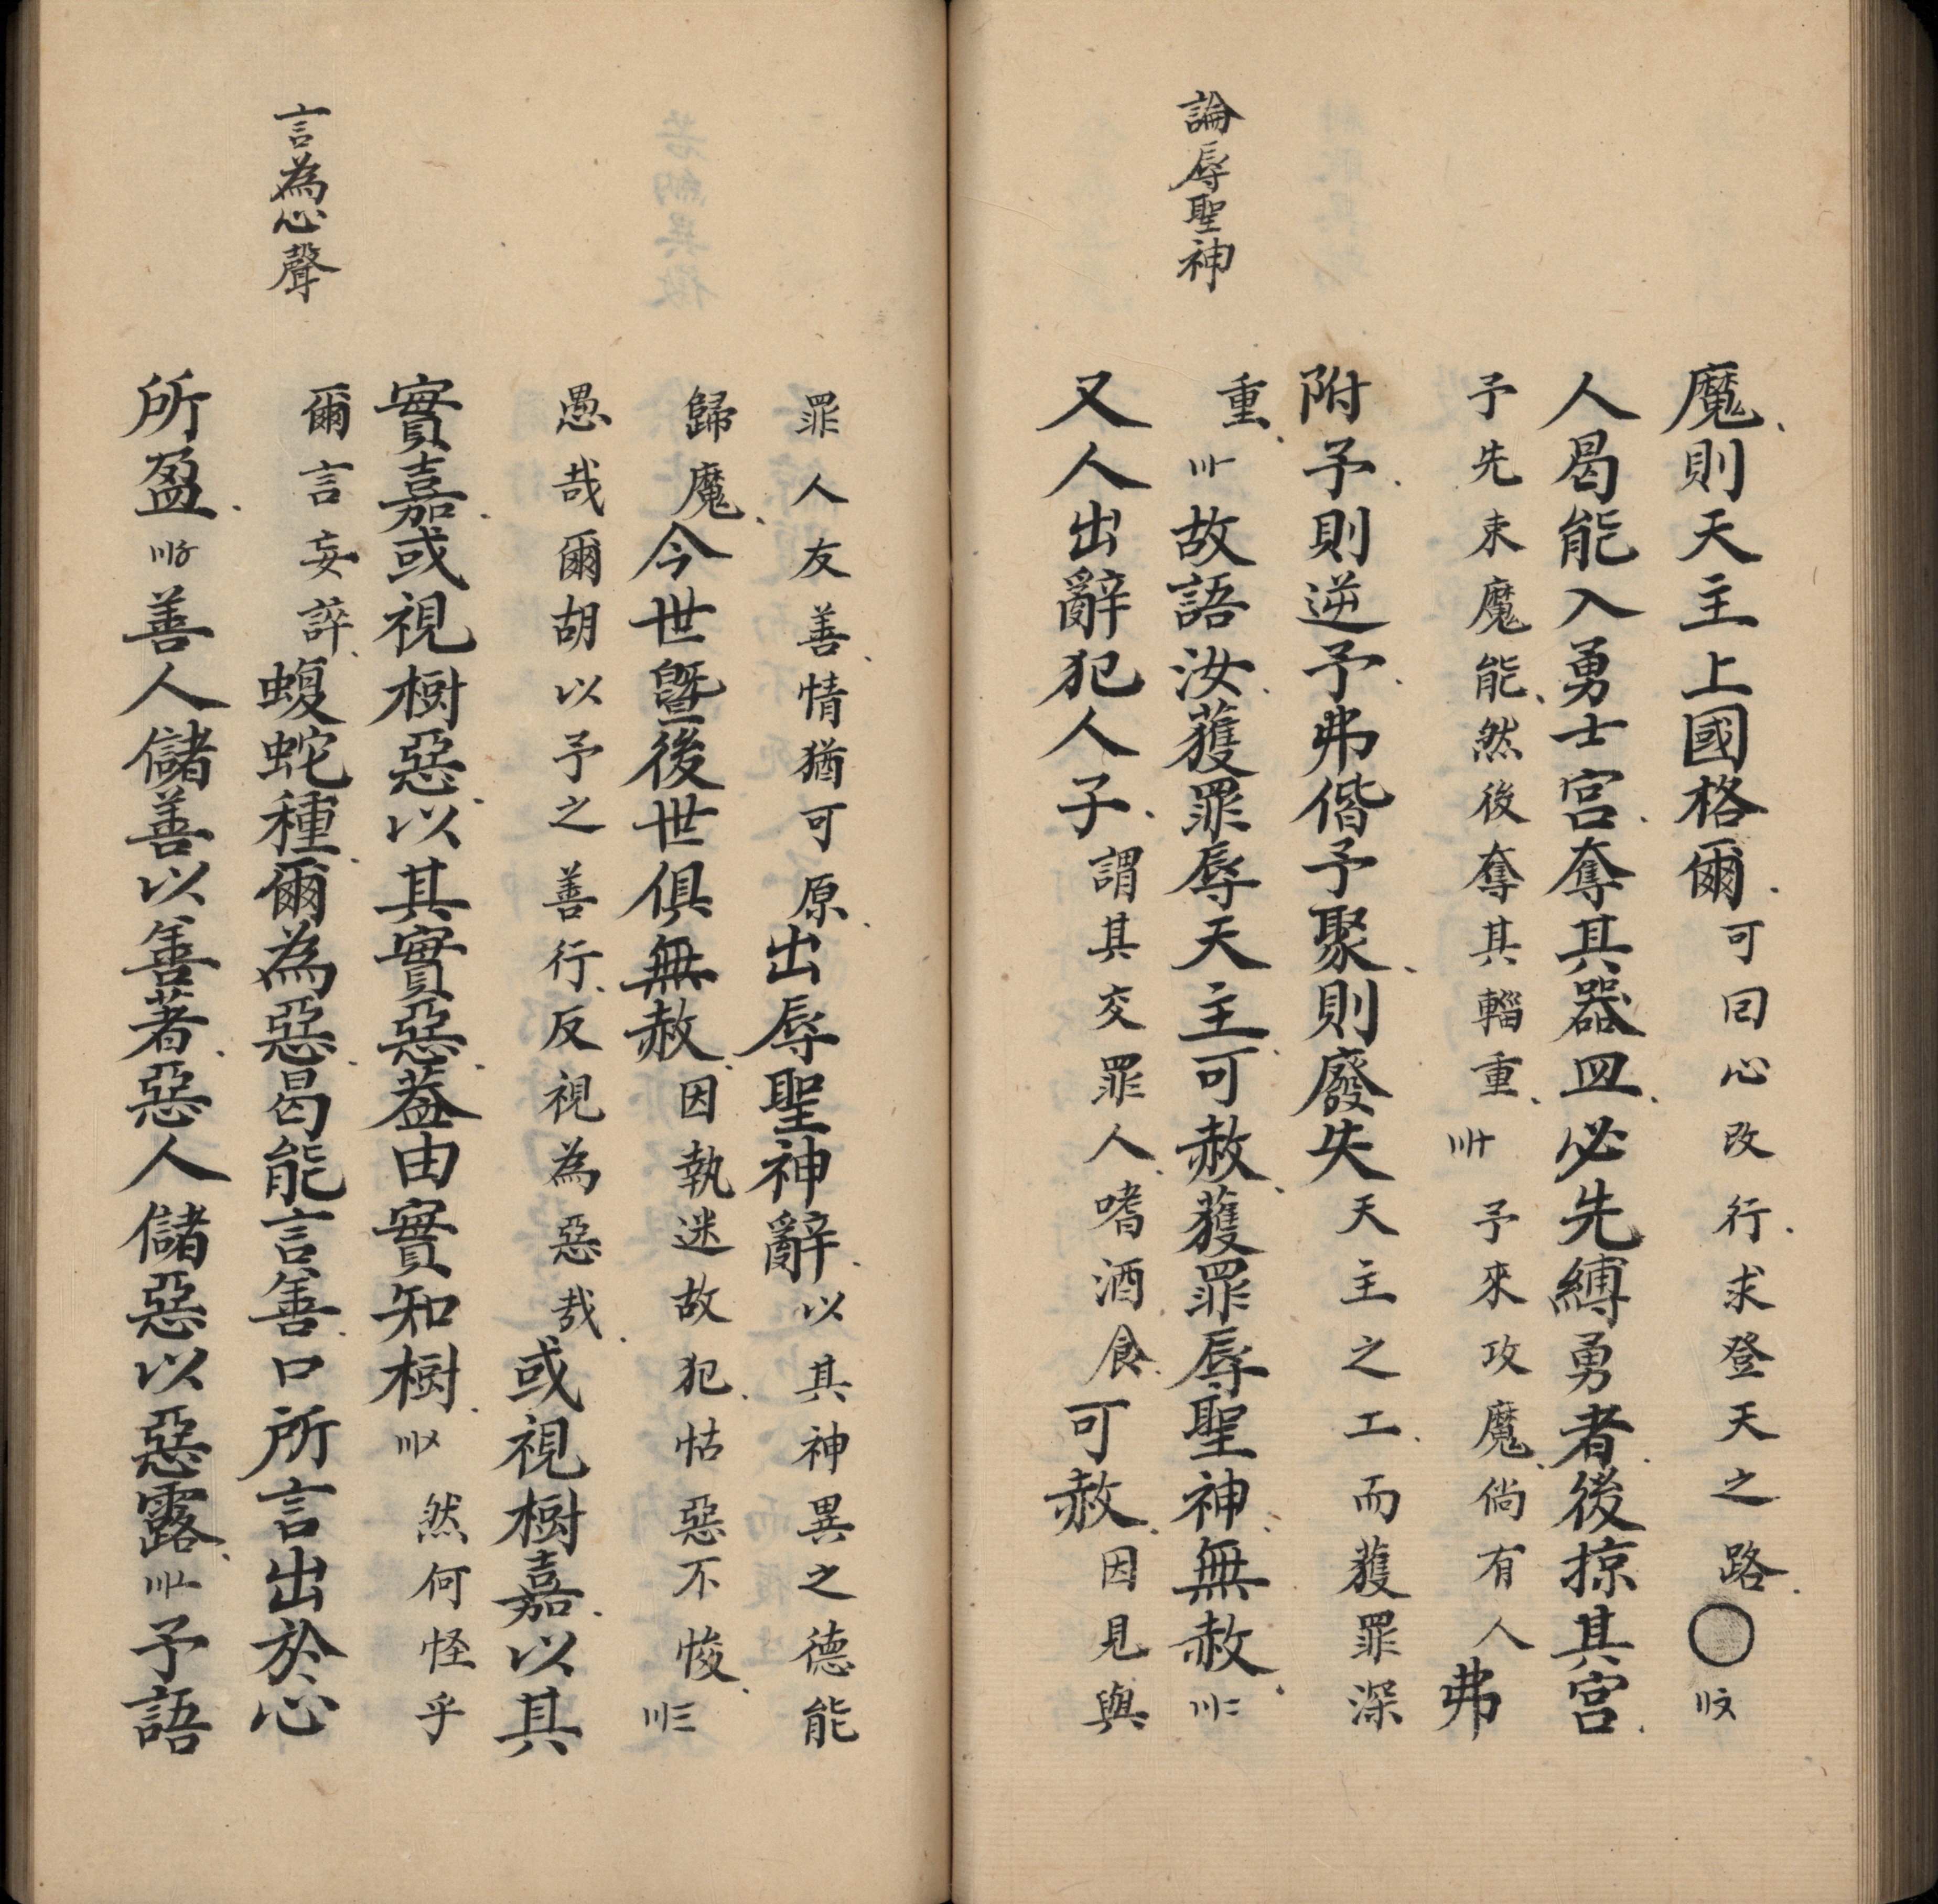 論辱聖神
魔則天主上國格爾可回心改行求登天之路〇〢〩
人曷能入勇士宮奪其器皿必先縛勇者後掠其宮
予先束魔能然後奪其輜重〣十予來攻魔倘有人弗
附予則逆予弗偕予聚則廢失天主之工而獲罪深
重〣一故語汝獲罪辱天主可赦獲罪辱聖神無赦〣二
又人出辭犯人子謂其交罪人嗜酒食可赦因見與
言為心聲
罪人友善情猶可原出辱聖神辭以其神異之德能
歸魔今世暨後世俱無赦因執迷故犯怙惡不悛〣三
愚哉爾胡以予之善行反視為惡哉或視樹嘉以其
實嘉或視樹惡以其實惡蓋由實知樹〣〤然何怪乎
爾言妄誶蝮蛇種爾為惡曷能言善口所言出於心
所盈〣〥善人儲善以善著惡人儲惡以惡露〣〦予語